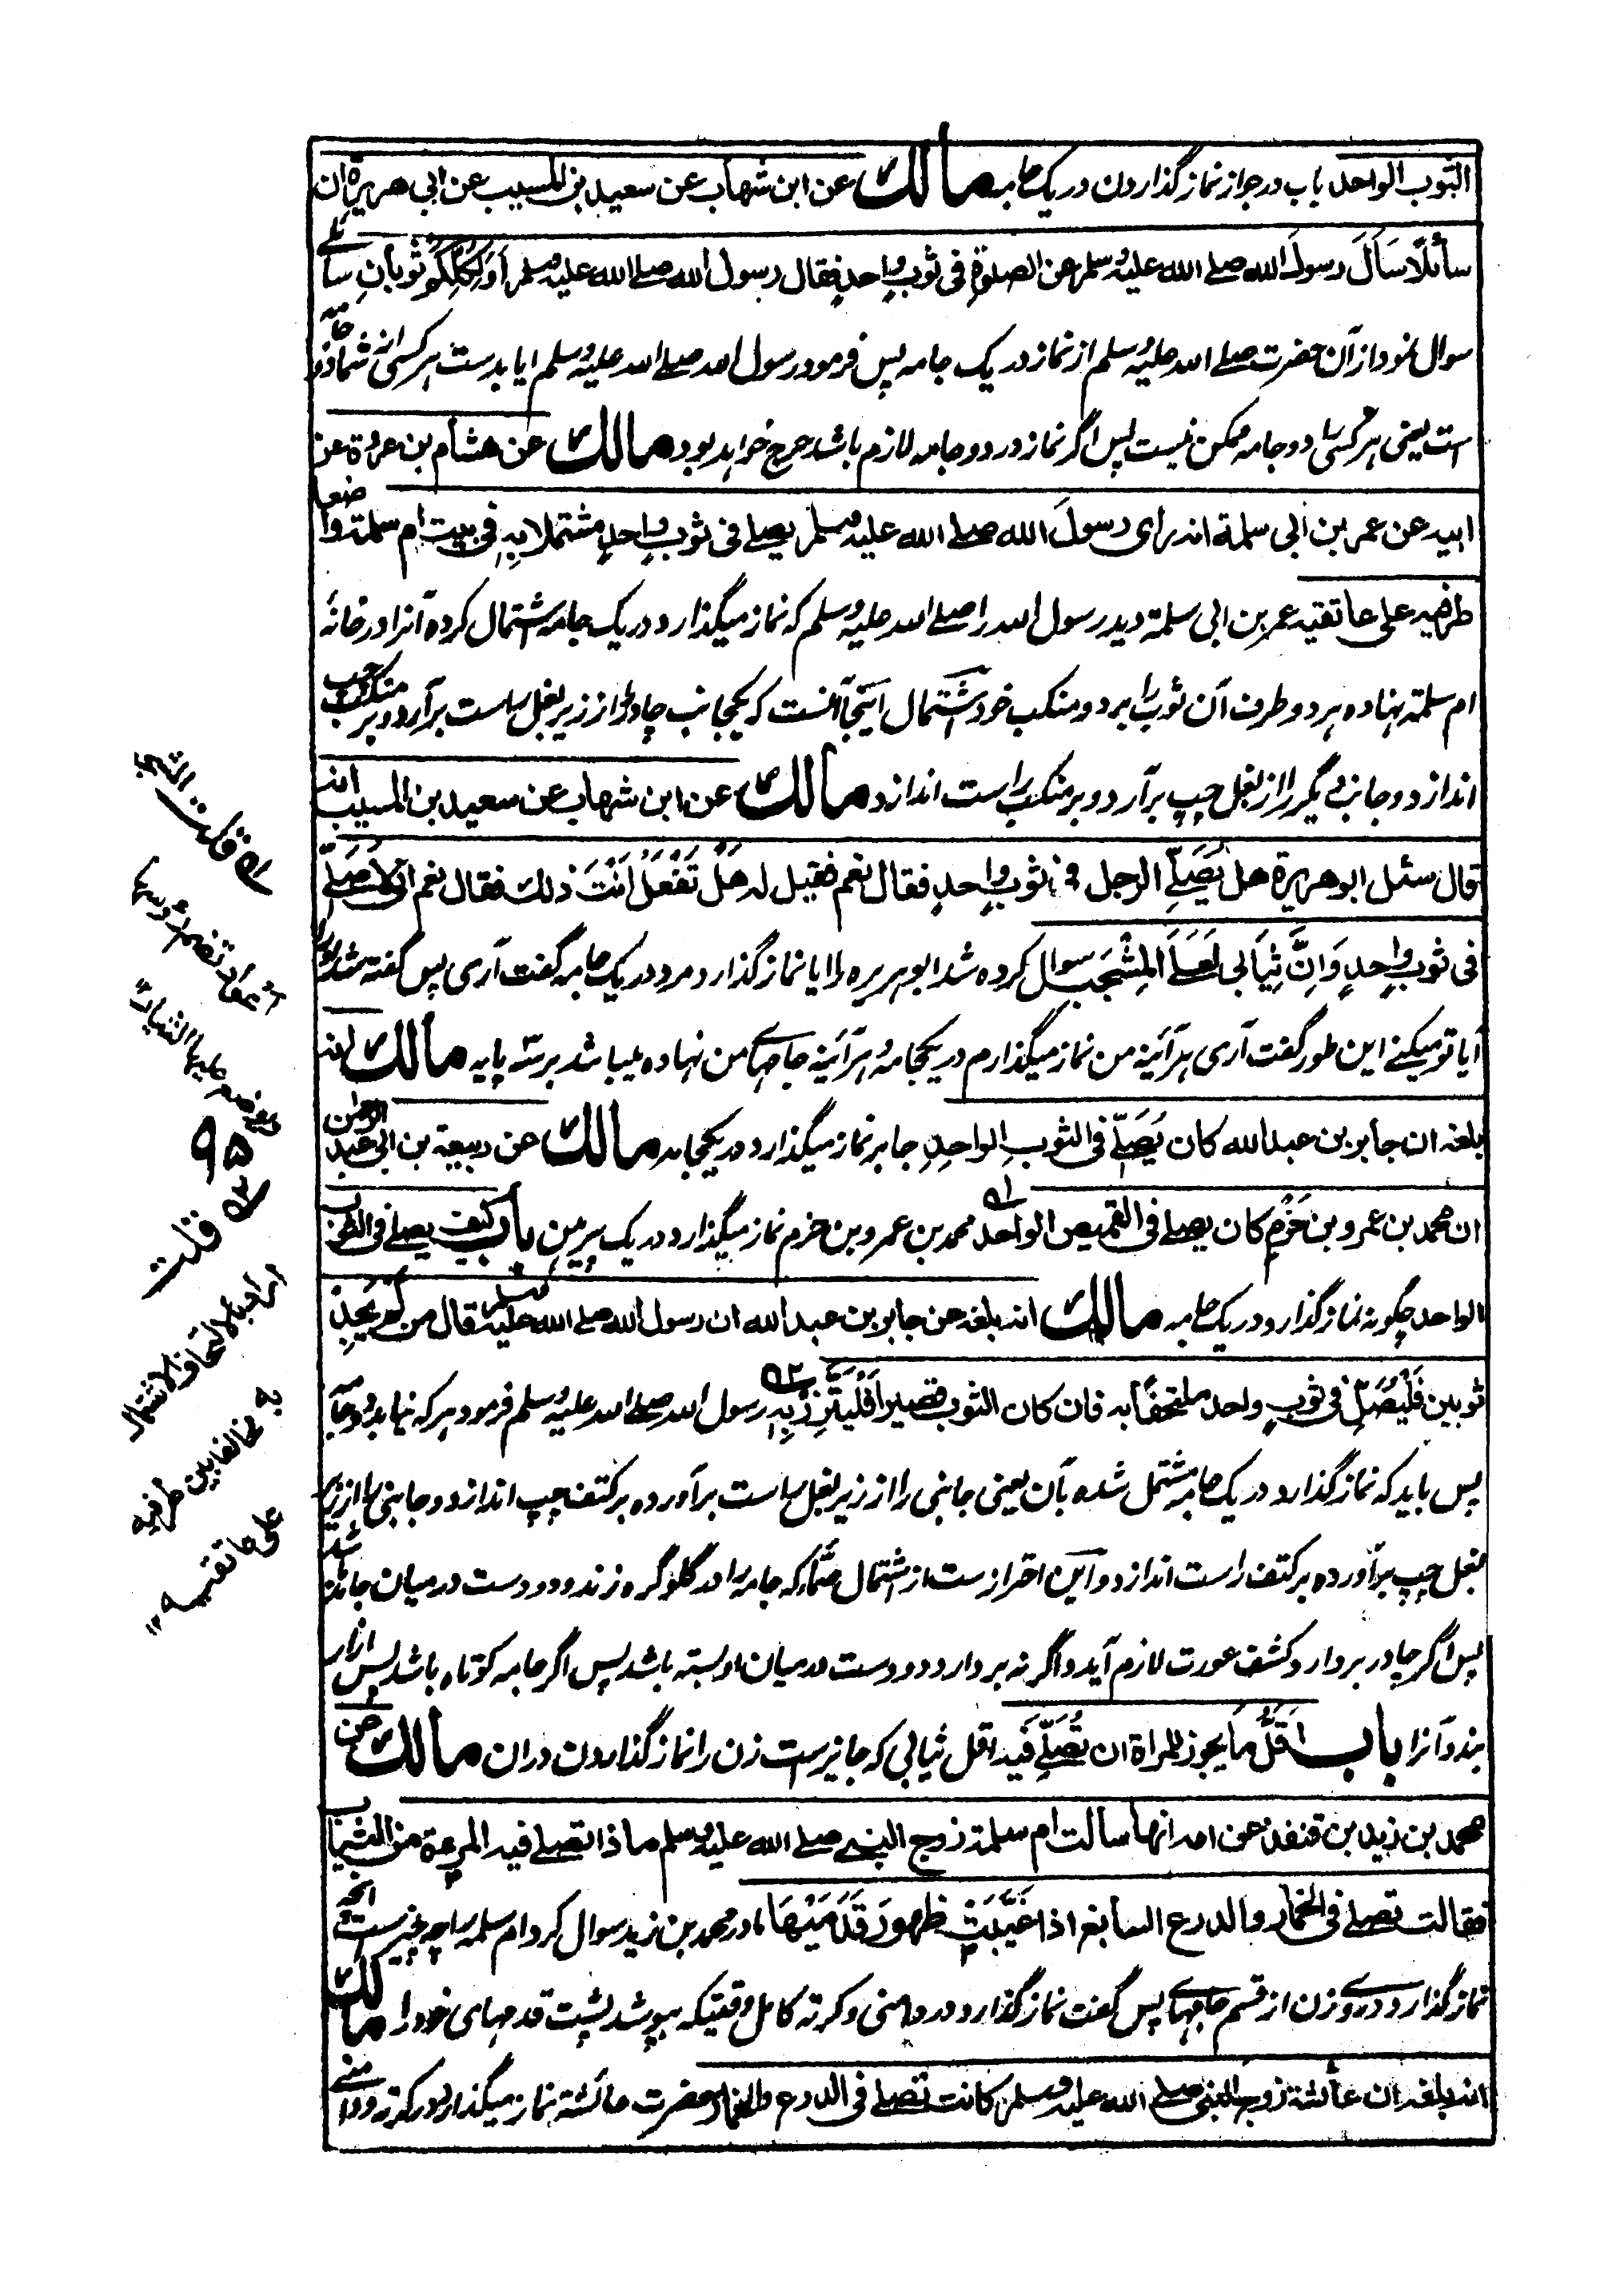 الثوب الواحد باب در جواز نماز گذاردن در یک جامه مالك عن ابن شهاب عن سعيد بن المسيب عن ابي هريرة ان
سائلًا سَأَلَ رسولَ الله صلے الله عليه وسلم عن الصلوة في ثوبٍ واحدٍ فقال رسول الله صلے الله عليه وسلم أَوَلِكُلِّكُمْ ثوبانِ سائلے
سوال نمود از آن حضرت صلے الله علیه وسلم از نماز در یک جامه پس فرمود رسول الله صلے الله علیه وسلم ایا بدست هر کسی از شما دو جامه
است یعنی هر کسی را دو جامه ممکن نیست پس اگر نماز در دو جامه لازم باشد حرج خواهد بود مالك عن هشام بن عروة عن
ابيه عن عمر بن ابي سلمة انه راى رسولَ الله صلے الله عليه وسلم يصلے في ثوبٍ واحدٍ مشتملا بِهِ في بيت ام سلمة واضعا
طرفيه على عاتقيه عمر بن ابی سلمة دید رسول الله را صلے الله علیه وسلم که نماز میگذارد در یک جامه اشتمال کرده آنرا در خانهٔ
ام سلمة نهاده هر دو طرف آن ثوب را بر دو منکب خود اشتمال اینجا آنست که یکجانب چادر را از زیر بغل راست برآرد و بر منکب چپ
اندازد و جانب دیگر را از بغل چپ برآرد و بر منکب راست اندازد مالك عن ابن شهاب عن سعيد بن المسيب انه
قال سئل ابو هريرة هل يُصَلِّے الرجل في ثوبٍ واحدٍ فقال نعم فقيل له هَلْ تَفْعَلُ اَنْتَ ذلك فقال نعم اني لَاُصَلِّے
في ثوبٍ واحدٍ وَاِنَّ ثِيَابي لَعَلَے الْمِشْجَبِ سوال کرده شد ابو هریره را ایا نماز گذارد مرد در یک جامه گفت آری پس گفته شد او را
آیا تو میکنے این طور گفت آری هر آئینه من نماز میگذارم در یکجامه و هر آئینه جامهاے من نهاده میباشد بر سه پایه مالك انه
بلغه ان جابر بن عبد الله كان يُصَلِّے في الثوبِ الواحدِ جابر نماز میگذارد در یکجامه مالك عن ربيعة بن ابي عبد الرحمن
ان محمد بن عمرو بن حَزْمٍ كان يصلے في القميص الواحد محمد بن عمرو بن حزم نماز میگذارد در یک پیرهن باب كيف يصلے في الثوب
الواحد چگونه نماز گذارد در یک جامه مالك انه بلغه عن جابر بن عبد الله ان رسول الله صلے الله عليه وسلم قال من لم يَجِدْ
ثوبين فَلْيُصَلِّ في ثوبٍ واحد ملتحفًا به فان كان الثوب قصيرا فَلْيَتَّزِرْ بِهِ رسول الله صلے الله علیه وسلم فرمود هر که نیابد دو جامه
پس باید که نماز گذارد در یک جامه مشتمل شده بآن یعنی جانبی را از زیر بغل راست برآورده بر کتف چپ اندازد و جانبی را از زیر
بغل چپ برآورده بر کتف راست اندازد و این احترازست از اشتمال صَمّاء که جامه را در گلو گره زند و دو دست در میان جامه باشد
پس اگر چادر بردارد کشف عورت لازم آید و اگر نه بردارد دو دست در میان او بسته باشد پس اگر جامه کوتاه باشد پس ازار
بندد آنرا باب اَقَلُّ ما يجوز للمراة ان تُصَلِّے فيه اقل ثیابی که جائزست زن را نماز گذاردن دران مالك عن
محمد بن زيد بن قنفذ عن امه انها سالت ام سلمة زوج النبے صلے الله عليه وسلم ماذا تصلے فيه المرءة من الثياب
فقالت تصلے في الخمار والدرع السابغ اذا غَيَّبَتْ ظهورَ قَدَمَيْهَا مادر محمد بن زید سوال کرد ام سلمه را چه چیزست آنچه
نماز گذارد در وے زن از قسم جامهاے پس گفت نماز گذارد در دامنی و کرته کامل وقتیکه بپوشد پشت قدمهای خود را مالك
انه بلغه ان عائشة زوج النبي صلے الله عليه وسلم كانت تصلے في الدرع والخمار حضرت عائشة نماز میگذارد در کرته و دامنے
قلت
۹۵
قلت
اراد بالالتحاف الاشتمال
به مخالفا بين طرفيه
على عاتقيه ١٢